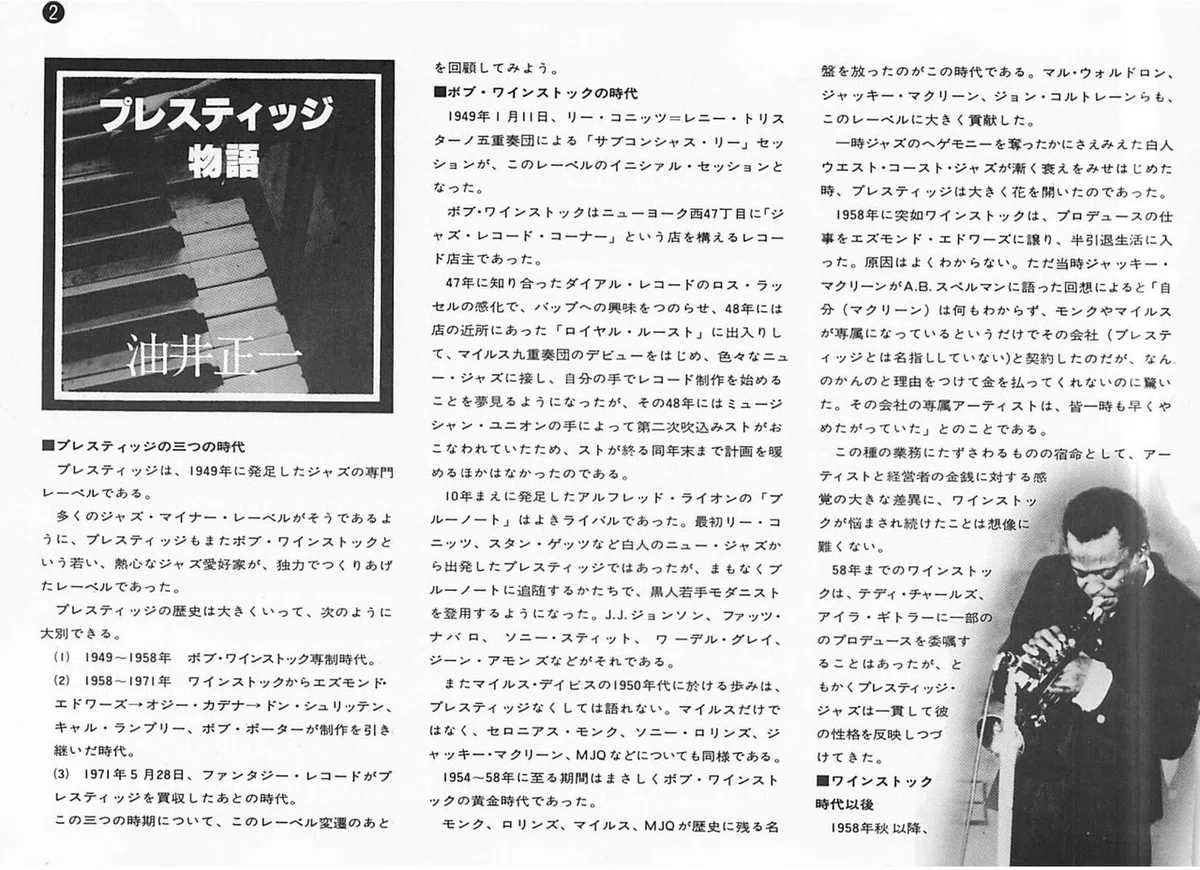 2
プレスティッジ
物語
油井正一
■プレスティッジの三つの時代
プレスティッジは、1949年に発足したジャズの専門
レーベルである。
多くのジャズ・マイナー・レーベルがそうであるよ
うに、プレスティッジもまたボブ・ワインストックと
いう若い、熱心なジャズ愛好家が、独力でつくりあげ
たレーベルであった。
プレスティッジの歴史は大きくいって、次のように
大別できる。
(1) 1949〜1958年 ボブ・ワインストック専制時代。
(2) 1958〜1971年 ワインストックからエズモンド・
エドワーズ→オジー・カデナ→ドン・シュリッテン、
キャル・ランプリー、ボブ・ポーターが制作を引き
継いだ時代。
(3) 1971年5月28日、ファンタジー・レコードがプ
レスティッジを買収したあとの時代。
この三つの時期について、このレーベル変遷のあと
を回顧してみよう。
■ボブ・ワインストックの時代
1949年1月11日、リー・コニッツ=レニー・トリス
ターノ五重奏団による「サブコンシャス・リー」セッ
ションが、このレーベルのイニシァル・セッションと
なった。
ボブ・ワインストックはニューヨーク西47丁目に「ジ
ャズ・レコード・コーナー」という店を構えるレコー
ド店主であった。
47年に知り合ったダイアル・レコードのロス・ラッ
セルの感化で、バップへの興味をつのらせ、48年には
店の近所にあった「ロイヤル・ルースト」に出入りし
て、マイルス九重奏団のデビューをはじめ、色々なニュ
ー・ジャズに接し、自分の手でレコード制作を始める
ことを夢見るようになったが、その48年にはミュージ
シャン・ユニオンの手によって第二次吹込みストがお
こなわれていたため、ストが終る同年末まで計画を暖
めるほかはなかったのである。
10年まえに発足したアルフレッド・ライオンの「ブ
ルーノート」はよきライバルであった。最初リー・コ
ニッツ、スタン・ゲッツなど白人のニュー・ジャズか
ら出発したプレスティッジではあったが、まもなくブ
ルーノートに追随するかたちで、黒人若手モダニスト
を登用するようになった。J.J.ジョンソン、ファッツ・
ナバロ、ソニー・スティット、ワーデル・グレイ、
ジーン・アモンズなどがそれである。
またマイルス・デイビスの1950年代に於ける歩みは、
プレスティッジなくしては語れない。マイルスだけで
はなく、セロニアス・モンク、ソニー・ロリンズ、ジ
ャッキー・マクリーン、MJQなどについても同様である。
1954〜58年に至る期間はまさしくボブ・ワインスト
ックの黄金時代であった。
モンク、ロリンズ、マイルス、MJQが歴史に残る名
盤を放ったのがこの時代である。マル・ウォルドロン、
ジャッキー・マクリーン、ジョン・コルトレーンらも、
このレーベルに大きく貢献した。
一時ジャズのヘゲモニーを奪ったかにさえみえた白人
ウエスト・コースト・ジャズが漸く衰えをみせはじめた
時、プレスティッジは大きく花を開いたのであった。
1958年に突如ワインストックは、プロデュースの仕
事をエズモンド・エドワーズに譲り、半引退生活に入
った。原因はよくわからない。ただ当時ジャッキー・
マクリーンがA.B.スペルマンに語った回想によると「自
分（マクリーン）は何もわからず、モンクやマイルス
が専属になっているというだけでその会社（プレステ
ィッジとは名指ししていない）と契約したのだが、なん
のかんのと理由をつけて金を払ってくれないのに驚い
た。その会社の専属アーティストは、皆一時も早くや
めたがっていた」とのことである。
この種の業務にたずさわるものの宿命として、アー
ティストと経営者の金銭に対する感
覚の大きな差異に、ワインストッ
クが悩まされ続けたことは想像に
難くない。
58年までのワインストッ
クは、テディ・チャールズ、
アイラ・ギトラーに一部の
のプロデュースを委嘱す
ることはあったが、と
もかくプレスティッジ・
ジャズは一貫して彼
の性格を反映しつづ
けてきた。
■ワインストック
時代以後
1958年秋以降、